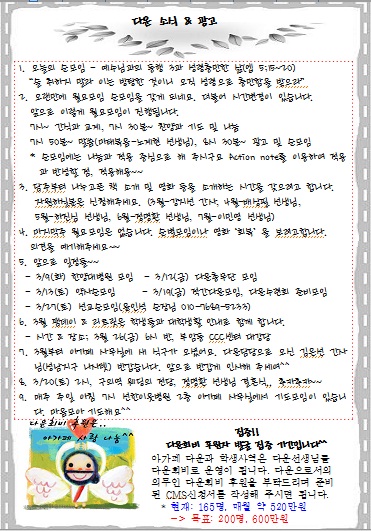 다운 소식 & 광고
1. 오늘의 순모임 - 예수님과의 동행 3과 성령충만한 삶(엡 5:15~20)
"술 취하지 말라 이는 방탕한 것이니 오직 성령으로 충만함을 받으라"
2. 오랜만에 월요모임 순모임을 갖게 되네요. 더불어 시간변경이 있습니다.
앞으로 이렇게 월요모임이 진행됩니다.
7시~ 간식과 교제, 7시 30분~ 찬양과 기도 및 나눔
7시 50분~ 말씀(마태복음-노계현 선생님), 8시 30분~ 광고 및 순모임
* 순모임에는 나눔과 적용 중심으로 해 주시구요 Action note를 이용하여 적용
과 반성할 점, 적용해용~~
3. 다음주부터 나누고픈 책 소개 및 영화 등을 소개하는 시간을 갖으려고 합니다.
자원하실분은 신청해주세요. (3월-강지선 간사, 4월- 선생님,
5월-하진님 선생님, 6월-정명환 선생님, 7월-이민영 선생님)
4. 마지막주 월요모임은 없습니다. 순별모임이나 영화 '회복' 을 보려고합니다.
의견을 얘기해주세요~~
5. 앞으로 일정들~~
- 3/9(화) 한양대병원 모임 - 3/12(금) 다운총무단 모임
- 3/13(토) 약사순모임 - 3/19(금) 직간다운모임, 다운수련회 준비모임
- 3/27(토) 선교순모임( 순장님 010-7689-5233)
6. 3월 팸데이 & 리트릿은 학생들과 대학생활 안내로 함께 합니다.
- 시간 & 장소: 3월 26(금) 6시 반, 부암동 CCC본부 대강당
7. 3월부터 아가페 사무실에 새 식구가 오셨어요. 다운담당으로 오신 김은선 간사
님(성남지구 나사렛) 반갑습니다. 앞으로 반갑게 인사해 주세여^^
8. 3/20(토) 2시, 구의역 웨딩의 전당, 정명환 선생님 결혼식.. 추카추카~~
9. 매주 주일 아침 7시 선한이웃병원 2층 아가페 사무실에서 기도모임이 있습니
다. 마음모아 기도해요^^
다운회비 후원은..
아가페 사랑 나눔^^
집중!!
다운회비 후원자 발굴 집중 기간입니다^^
아가페 다운과 학생사역은 다운선생님들
다운회비로 운영이 됩니다. 다운으로서의
의무인 다운회비 후원을 부탁드리며 준비
된 CMS신청서를 작성해 주시면 됩니다.
* 현재: 165명, 매월 약 520만원
-> 목표: 200명, 600만원